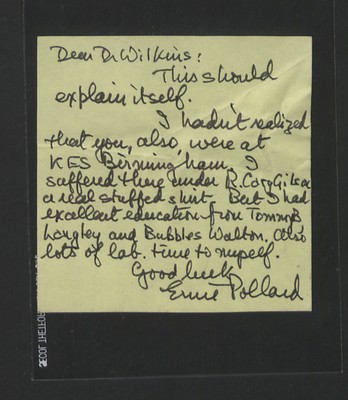 Dear Dr Wilkins:
This should
explain itself.
I hadn't realized
that you, also, were at
KES Birmingham. I
suffered there under R. Cary Gilson
a real stuffed shirt. But I had
excellent education from Tommy B
Langley and Bubbles Walton. Also
lots of lab. time to myself.
Good luck
Ernie Pollard